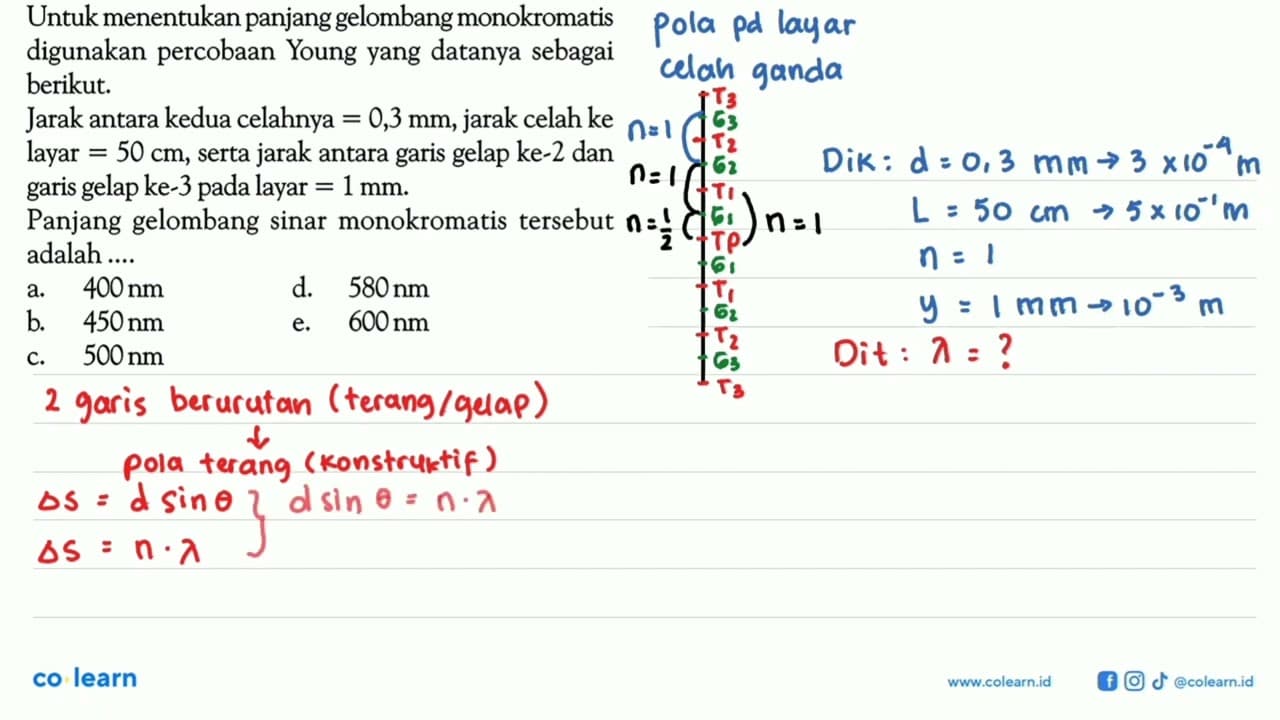 Untuk menentukan panjang gelombang monokromatis
digunakan percobaan Young yang datanya sebagai
berikut.
Jarak antara kedua celahnya = 0,3 mm, jarak celah ke
layar = 50 cm, serta jarak antara garis gelap ke-2 dan
garis gelap ke-3 pada layar = 1 mm.
Panjang gelombang sinar monokromatis tersebut
adalah ....
a. 400 nm d. 580 nm
b. 450 nm e. 600 nm
c. 500 nm
pola pd layar
celah ganda
T3
G3
n=1 T2
G2
n=1 T1
n=1/2 G1 n=1
TP
G1
T1
G2
T2
G3
T3
Dik: d = 0,3 mm → 3 x 10⁻⁴ m
L = 50 cm → 5 x 10⁻¹ m
n = 1
y = 1 mm → 10⁻³ m
Dit: λ = ?
2 garis berurutan (terang/gelap)
↓
pola terang (konstruktif)
ΔS = d sin θ } d sin θ = n . λ
ΔS = n . λ
co learn
www.colearn.id @colearn.id